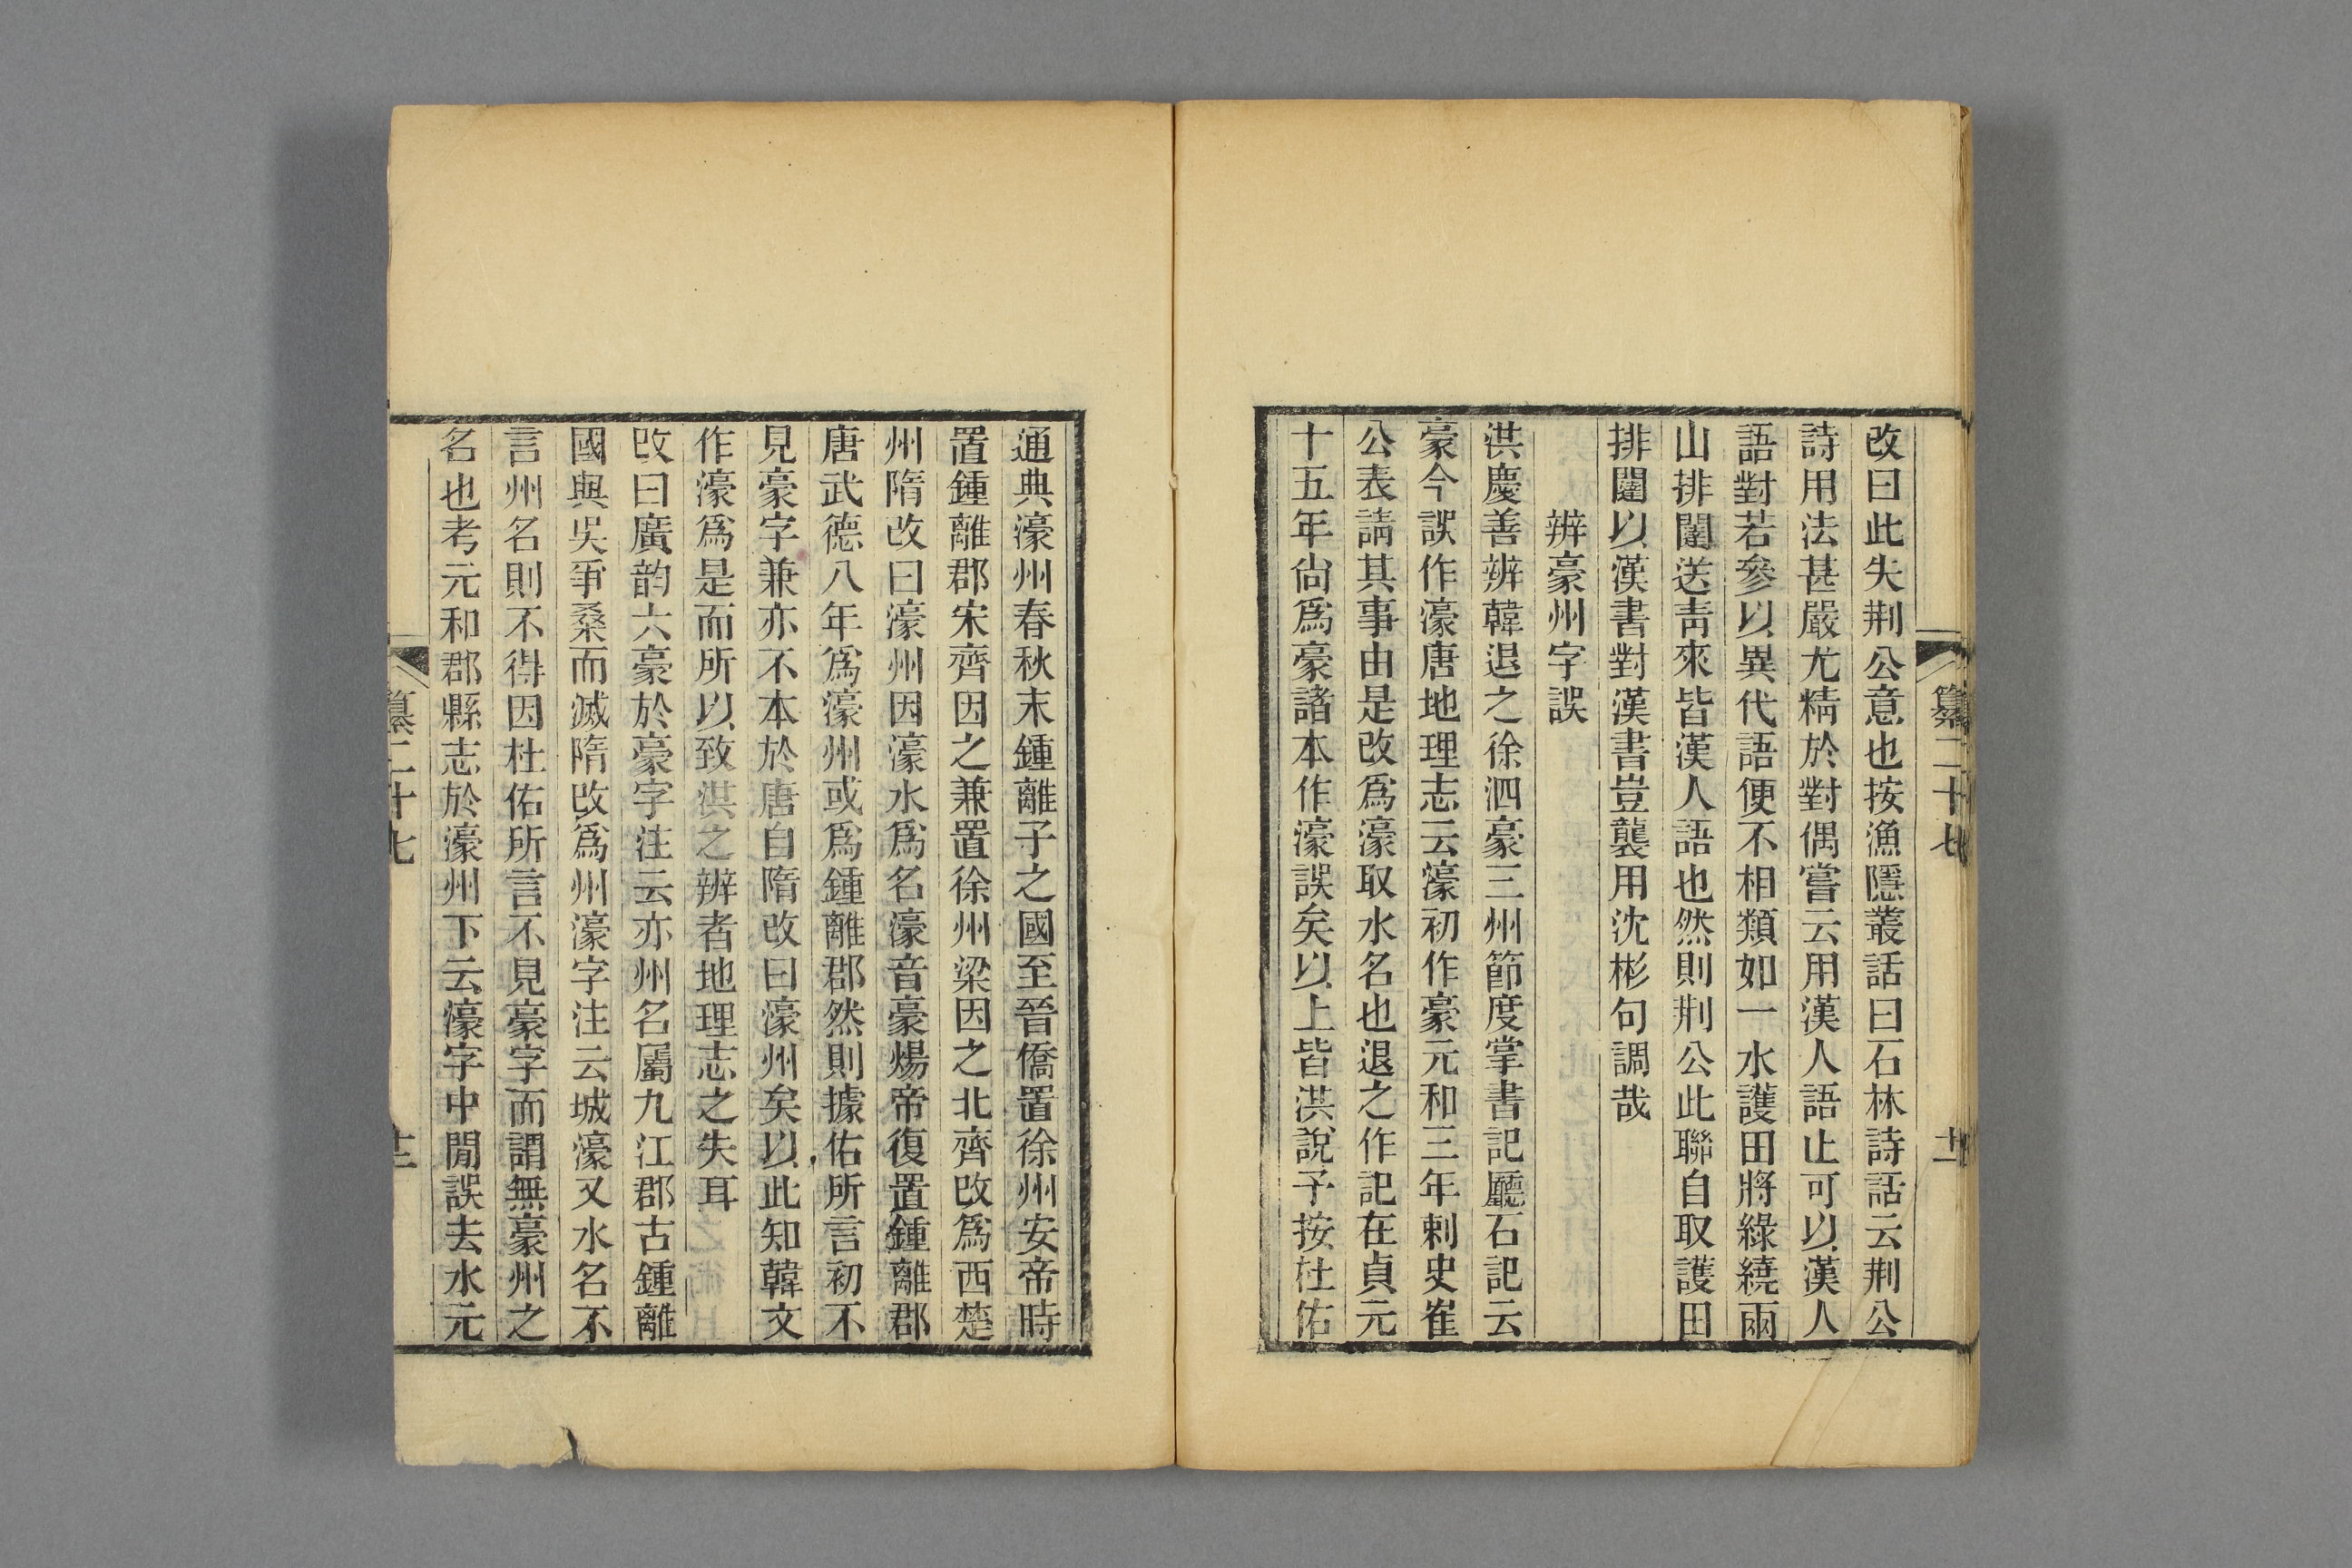 纂二十七
十二
改曰此失荆公意也按漁隱叢話曰石林詩話云荆公
詩用法甚嚴尤精於對偶嘗云用漢人語止可以漢人
語對若參以異代語便不相類如一水護田將綠繞兩
山排闥送靑來皆漢人語也然則荆公此聯自取護田
排闥以漢書對漢書豈襲用沈彬句調哉
辨豪州字誤
洪慶善辨韓退之徐泗豪三州節度掌書記廳石記云
豪今誤作濠唐地理志云濠初作豪元和三年刺史崔
公表請其事由是改爲濠取水名也退之作記在貞元
十五年尙爲豪諸本作濠誤矣以上皆洪說予按杜佑
通典濠州春秋末鍾離子之國至晉僑置徐州安帝時
置鍾離郡宋齊因之兼置徐州梁因之北齊改爲西楚
州隋改曰濠州因濠水爲名濠音豪煬帝復置鍾離郡
唐武德八年爲濠州或爲鍾離郡然則據佑所言初不
見豪字兼亦不本於唐自隋改曰濠州矣以此知韓文
作濠爲是而所以致洪之辨者地理志之失耳
改曰廣韵六豪於豪字注云亦州名屬九江郡古鍾離
國與吳爭桑而滅隋改爲州濠字注云城濠又水名不
言州名則不得因杜佑所言不見豪字而謂無豪州之
名也考元和郡縣志於濠州下云濠字中閒誤去水元
纂二十七
十三